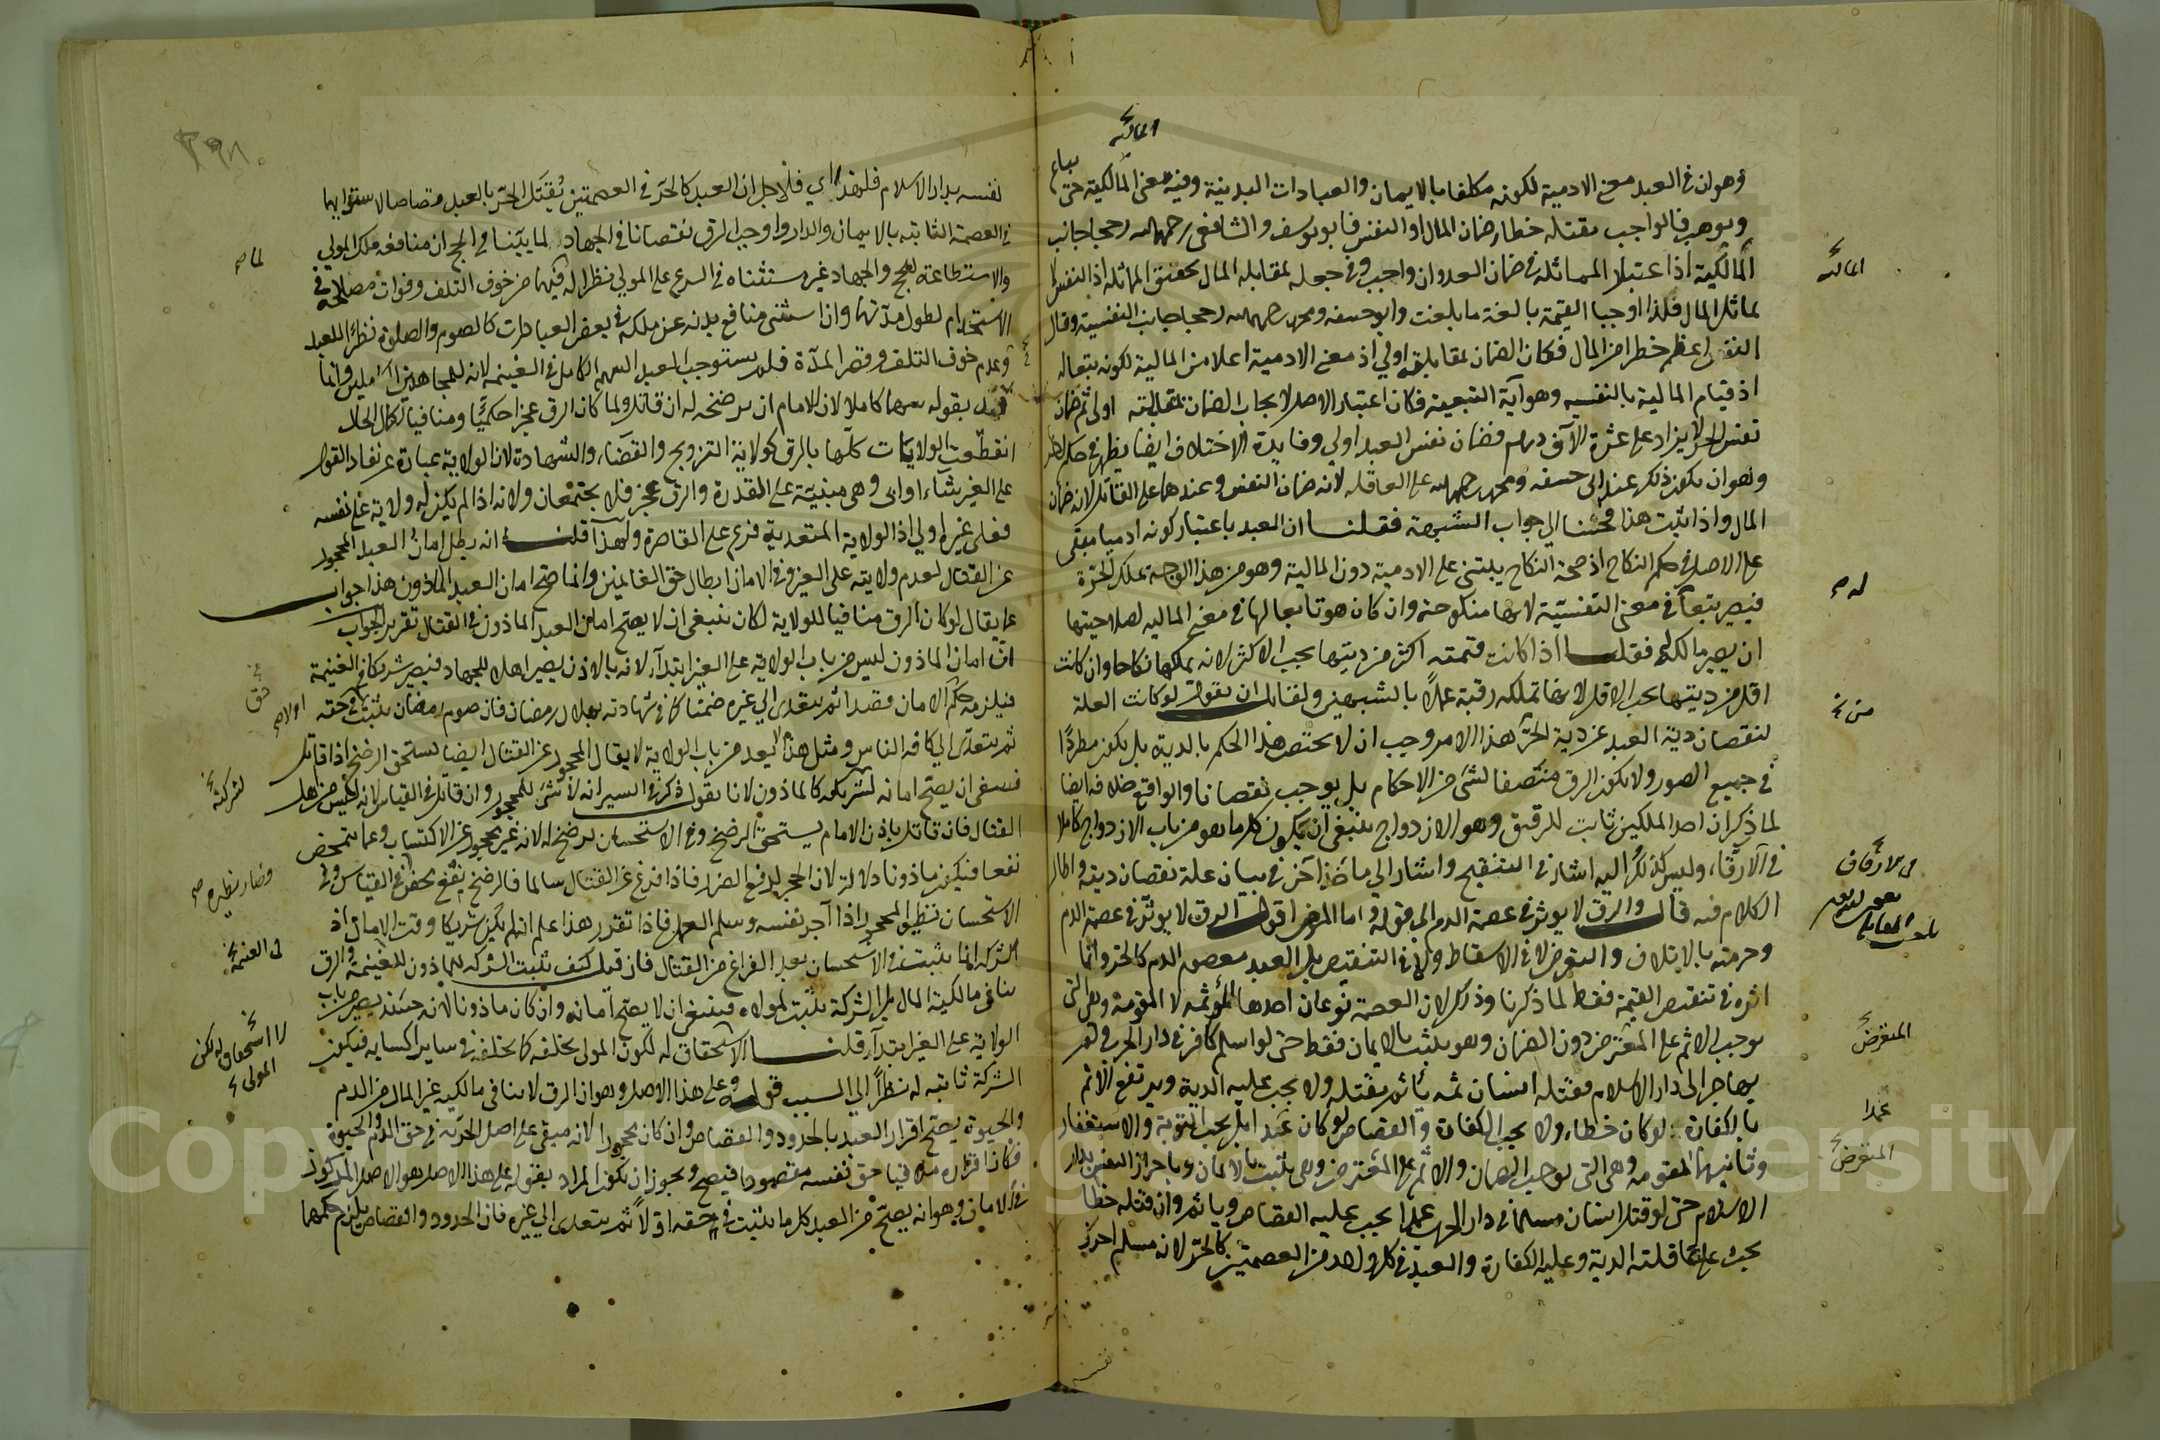 المالية
وهو ان في العبد معنى الادمية لكونه مكلفا بالايمان والعبادات البدنية وفيه معنى المالكية حتى يباع
ويوهب فالواجب بقتله خطا ضمان المال او النفس فابو يوسف والشافعي رحمهما الله رجحا جانب
المالكية اذا اعتبار المماثلة في ضمان العدوان واجب وفي جعله بمقابلة المال تحقق المماثلة اذ النفس لا
تماثل المال فلذا اوجبا القيمة بالغة ما بلغت وابو حنيفة ومحمد رحمهما الله رجحا جانب النفسية وقالا
النفس اعظم خطرا من المال فكان الضمان بمقابلته اولى اذ معنى الادمية اعلا من المالية لكونه تبعا له
اذ قيام المالية بالنفس وهو آية التبعية فكان اعتبار الاصل لايجاب الضمان بمقابلته اولى ثم ضمان
نفس الحر لا يزاد على عشرة الآف درهم فضمان نفس العبد اولى وفايدة الاختلاف ايضا يظهر في حكم اخر
وهو ان يكون ذلك عند ابي حنيفة ومحمد رحمهما الله على العاقلة لانه ضمان النفس وعندهما على القاتل لانه ضمان
المال واذا ثبت هذا فجئنا الى جواب الشبهة فقلنا ان العبد باعتبار كونه ادميا مبقى
على الاصل في حكم النكاح اذ صحة النكاح يبتنى على الادمية دون المالية وهو من هذا الوجه تملك الحرة
فيصير تبعا في معنى النفسية لانها منكوحة وان كان هو تابعا لها في معنى المالية لصلاحيتها
ان يصير مالكه فقلنا اذا كانت قيمته اكثر من ديتها يجب الاكثر لانه يملكها نكاحا وان كانت
اقل من ديتها يجب الاقل لانها تملكه رقبة عملا بالشبهين ولقائل ان يقول لو كانت العلة
لنقصان دية العبد عن دية الحر هذا الامر وجب ان لا يختص هذا الحكم بالدية بل يكون مطردا
في جميع الصور ولا يكون الرق منصفا لشئ من الاحكام بل يوجب نقصانا والواقع خلافه ايضا
لما ذكر ان احد الملكين ثابت للرقيق وهو الازدواج ينبغي ان يكون كل ما هو من باب الازدواج كاملا
في الارقاء وليس كذلك اليه اشار في التنقيح واشار الى ماخذ آخر في بيان علة نقصان ديته واطال
الكلام فيه قال والرق لا يوثر في عصمة الدم الى قوله واما المرض اقول الرق لا يوثر في عصمة الدم
وحرمته بالاتلاف والتعرض لا في الاسقاط ولا في التنقيص بل العبد معصوم الدم كالحر وانما
اثره في تنقيص القيمة فقط لما ذكرنا وذلك لان العصمة نوعان احدها المؤثمة لا المقومة وهي التي
يوجب الاثم على المتعرض دون الضمان وهو يثبت بالايمان فقط حتى لو اسلم كافر في دار الحرب ثم
يهاجر الى دار الاسلام فقتله انسان ثمه ياثم بقتله ولا يجب عليه الدية ويرتفع الاثم
بالكفارة لو كان خطاء ولا يجب الكفارة والقصاص لو كان عمدا بل يجب التوبة والاستغفار
وثانيها المقومة وهي التي يوجب الضمان والاثم على المتعرض وهي يثبت بالايمان وباحراز النفس بدار
الاسلام حتى لو قتل انسان مسلما في دار الاسلام عمدا يجب عليه القصاص وياثم وان قتله خطا
يجب على عاقلته الدية وعليه الكفارة والعبد في كل واحد من العصمتين كالحر لانه مسلم احرز
نفسه
المالية
له صح
المتعرض
عمدا
المتعرض
نفسه بدار الاسلام فلهذا اي فلاجل ان العبد كالحر في العصمتين يُقتَل الحرّ بالعبد قصاصا لاستوايهما
في العصمة الثابتة بالايمان والدار واوجب الرق نقصانا في الجهاد لما بيّنا في الحج ان منافعه ملك المولى
والاستطاعة للحج والجهاد غير مستثناه في الشرع على المولى نظرا له فيهما من خوف التلف وفوات مصلحة في
الاستخدام لطول مدتهما وانما استثنى منافع بدنه عن ملكه في بعض العبادات كالصوم والصلوة نظرا للعبد
وعدم خوف التلف وقصر المدة فلم يستوجب العبد السهم الكامل في الغنيمة لانه للمجاهدين الكاملين وانما
قيد بقوله سهما كاملا لان للامام ان يرضخ له ان قاتل ولما كان الرق عجزا حكميا ومنافيا لكمال الحال
انقطعت الولايات كلها بالرق كولاية التزويج والقضاء والشهادة لان الولاية عبارة عن نفاذ القول
على الغير شاء او ابى وهي مبنيّة على القدرة والرق عجز فلا يجتمعان ولانه اذا لم يكن له ولاية على نفسه
فعلى غيره اولى اذ الولاية المتعدية فرع على القاصرة ولهذا قلنا انه بطل امان العبد المحجور
عن القتال لعدم ولايته على الغير وفي الامان ابطال حق الغانمين وانما صح امان العبد الماذون هذا جواب
عما يقال لو كان الرق منافيا للولاية لكان ينبغي ان لا يصح امان العبد الماذون في القتال تقرير الجواب
ان امان الماذون ليس من باب الولاية على الغير ابتداء لانه بالاذن يصير اهلا للجهاد فيصير شريكا في الغنيمة
فيلزمه حكم الامان قصدا ثم يتعدى الى غيره ضمنا كما في شهادته بهلال رمضان فان صوم رمضان يثبت في حقه
ثم يتعدى الى كافة الناس ومثل هذا لا يعد من باب الولاية لا يقال المحجور عن القتال ايضا يستحق الرضخ اذا قاتل
فينبغي ان يصح امانه لشركته كالماذون لانا نقول ذكر في السير انه لا شئ للمحجور وان قاتل في القياس لانه ليس من اهل
القتال فان قاتل باذن الامام يستحق الرضخ وفي الاستحسان يرضخ له لانه غير محجور عن الاكتساب وعما يتمحض
نفعا فيكون ماذونا دلالة لان الحجر لدفع الضرر فاذا فرغ عن القتال سالما فالرضخ نفع محض في القياس وفي
الاستحسان نظير المحجور اذا آجر نفسه وسلم العمل فاذا تقرر هذا علم انه لم يكن شريكا وقت الامان اذ
الشركة انما يثبت في الاستحسان بعد الفراغ من القتال فان قيل كيف يثبت الشركة للماذون للغنيمة والرق
ينافي مالكية المال بل الشركة يثبت لمولاه فينبغي ان لا يصح امانه وان كان ماذونا لانه حينئذ يصير من باب
الولاية على الغير ابتداء قلنا الاستحقاق له لكون المولى يخلفه كما يخلفه في ساير اكسابه فيكون
الشركة ثابتة له نظرا الى السبب قوله وعلى هذا الاصل وهو ان الرق لا ينافي مالكية غير المال من الدم
والحيوة يصح اقرار العبد بالحدود والقصاص وان كان محجورا لانه مبقى على اصل الحرية في حق الدم والحيوة
فكان اقراره ملاقيا حق نفسه مقصودا فيصح ويجوز ان يكون المراد بقوله على هذا الاصل هو الاصل المذكور
في الامان وهو انه يصح من العبد كل ما يثبت في حقه اولا ثم يتعدى الى غيره فان الحدود والقصاص يلزم حكمهما
اولا صح
لشركته
وصار نظيره صح
في الغنيمة
لا استحقاق له لكن
المولى